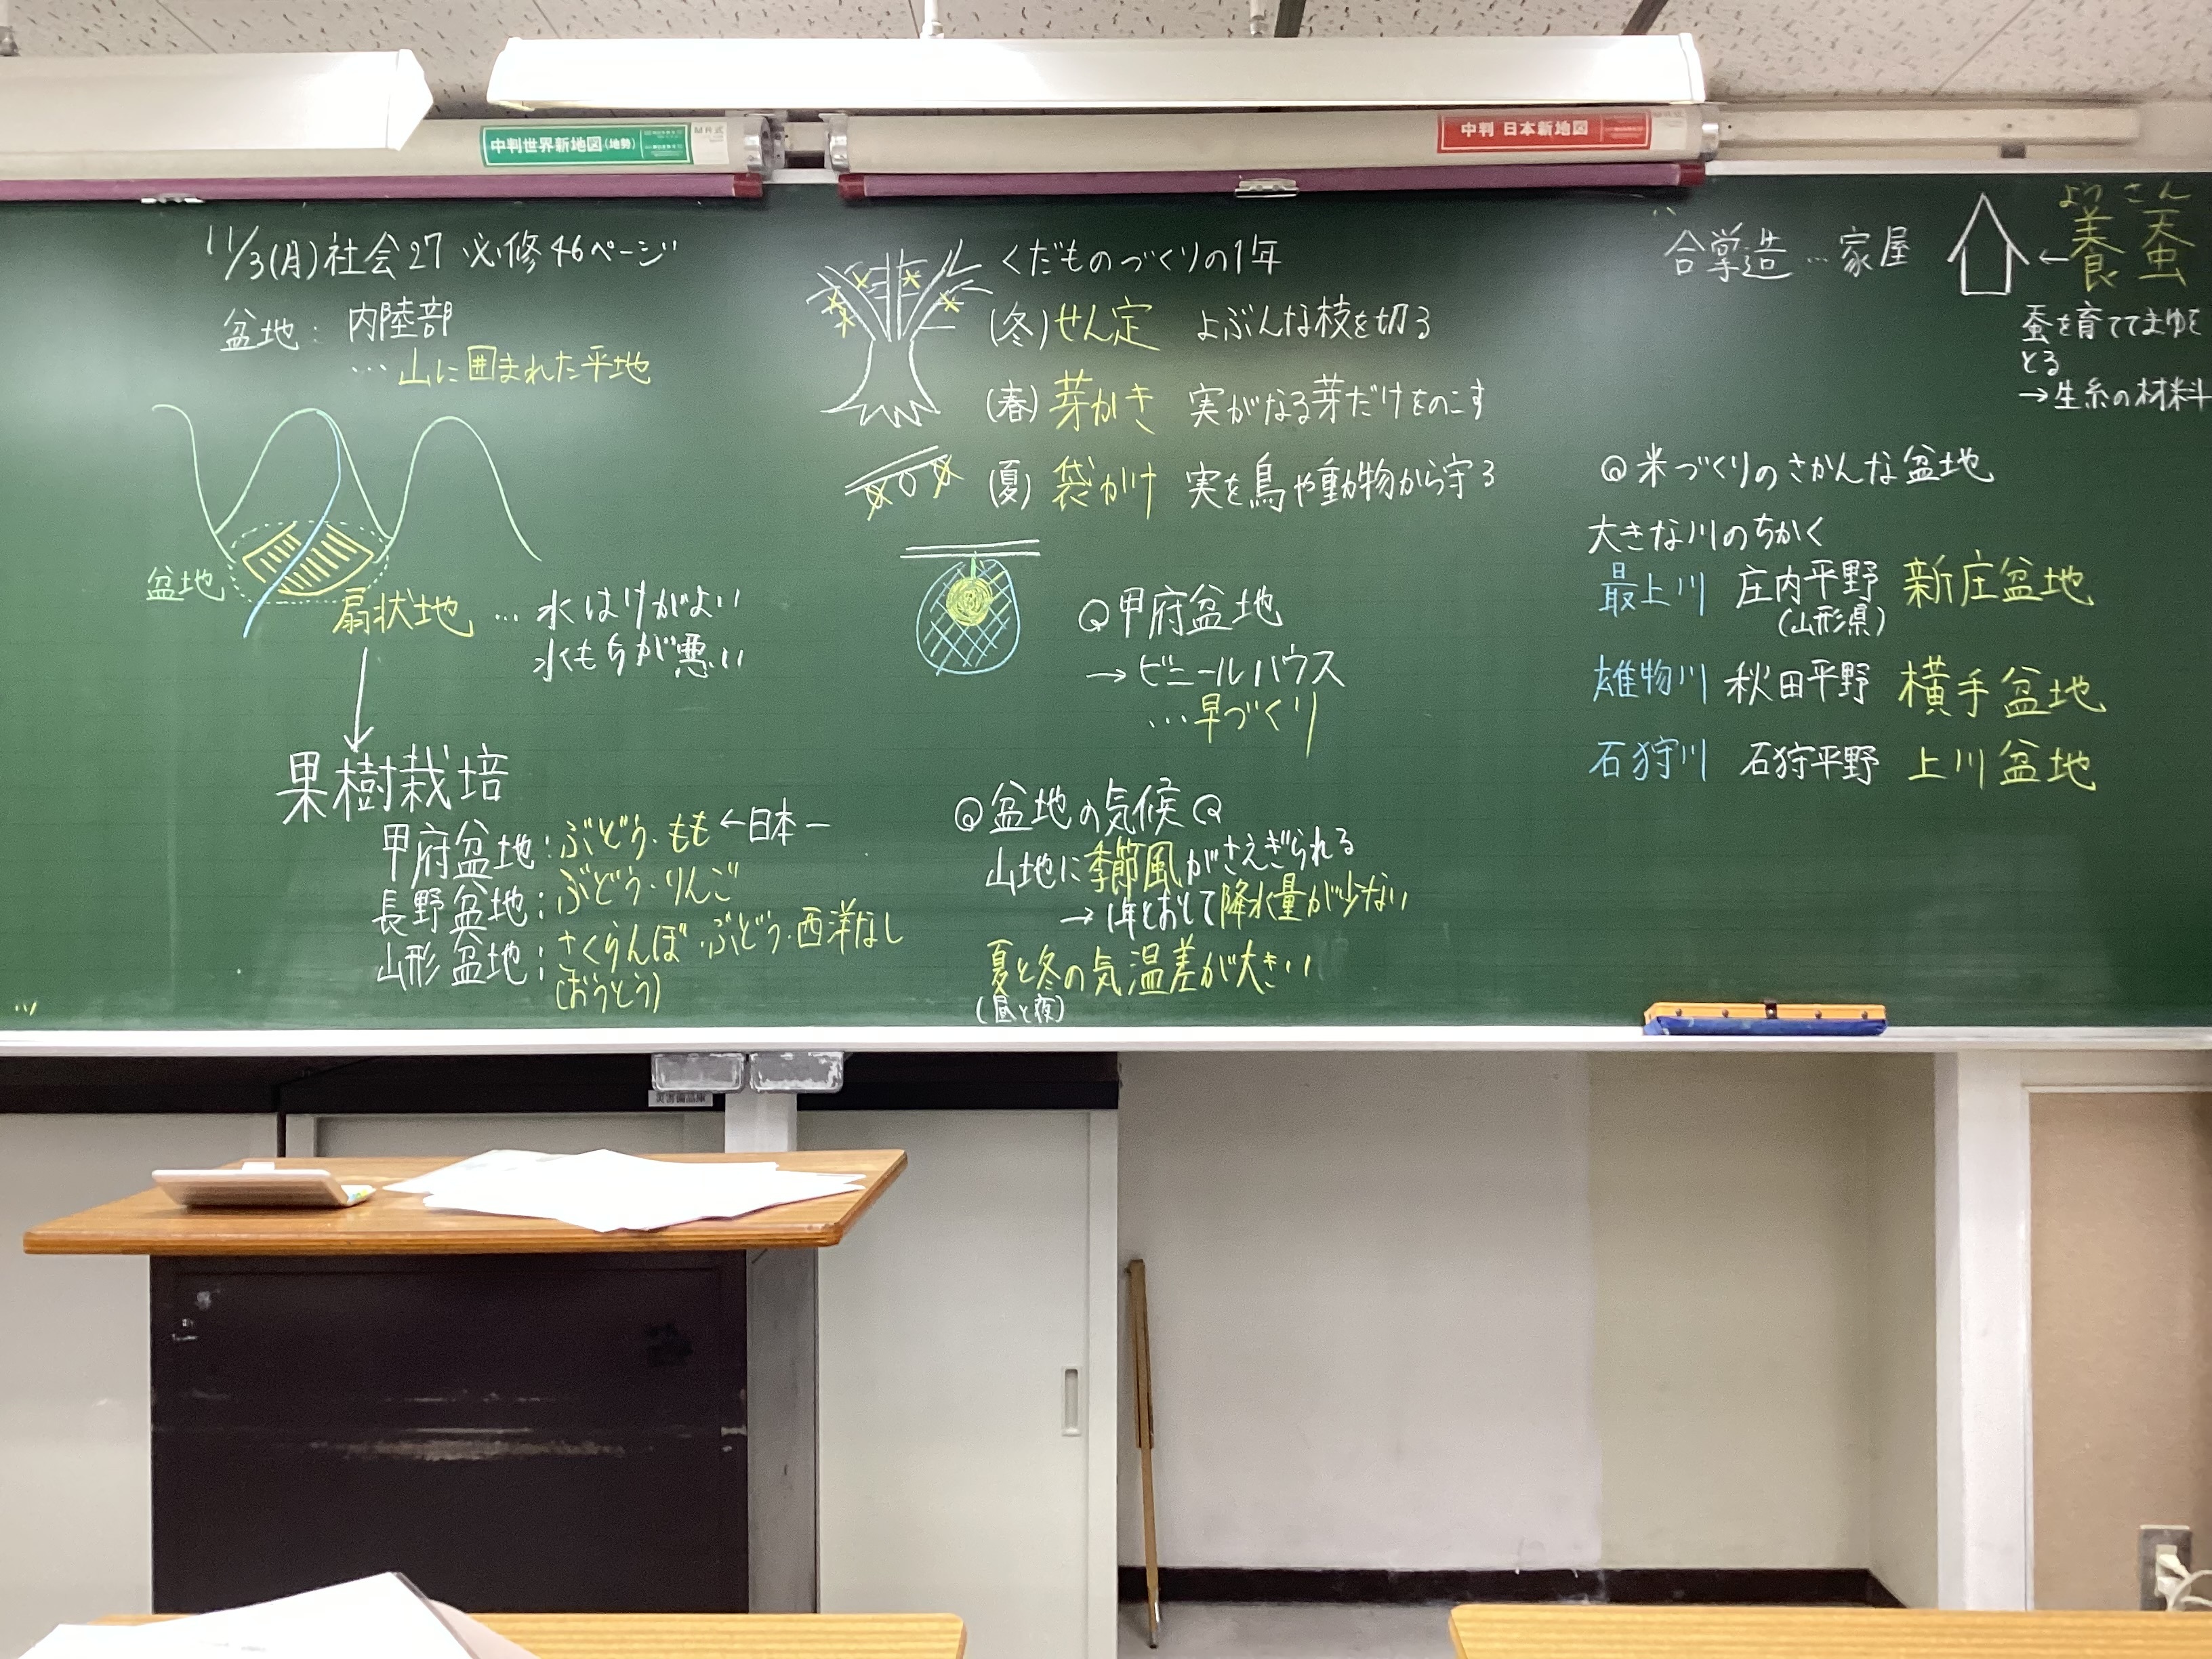 中判世界新地図(地勢)
中判 日本新地図
11/3(月)社会27 必修46ページ
盆地: 内陸部
…山に囲まれた平地
盆地
扇状地 … 水はけがよい
水もちが悪い
果樹栽培
甲府盆地:ぶどう・もも←日本一
長野盆地:ぶどう・りんご
山形盆地:さくらんぼ・ぶどう・西洋なし
(おうとう)
くだものづくりの1年
(冬)せん定 よぶんな枝を切る
(春)芽かき 実がなる芽だけをのこす
(夏)袋がけ 実を鳥や動物から守る
甲府盆地
→ビニールハウス
…早づくり
盆地の気候
山地に季節風がさえぎられる
→1年とおして降水量が少ない
夏と冬の気温差が大きい
(昼と夜)
合掌造…家屋
←養蚕
ようさん
蚕を育ててまゆを
とる
→生糸の材料
米づくりのさかんな盆地
大きな川のちかく
最上川 庄内平野 新庄盆地
(山形県)
雄物川 秋田平野 横手盆地
石狩川 石狩平野 上川盆地
災害備品庫